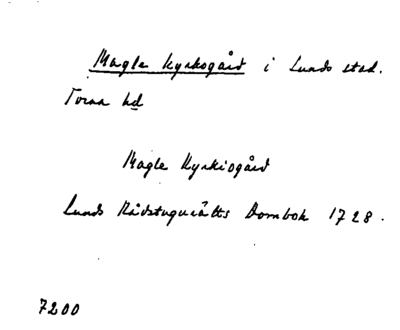 Magle Kyrkogård i Lunds stad.
Torna hd
Magle Kyrkiogård
Lunds Rådstugurätts Dombok 1728.
7200